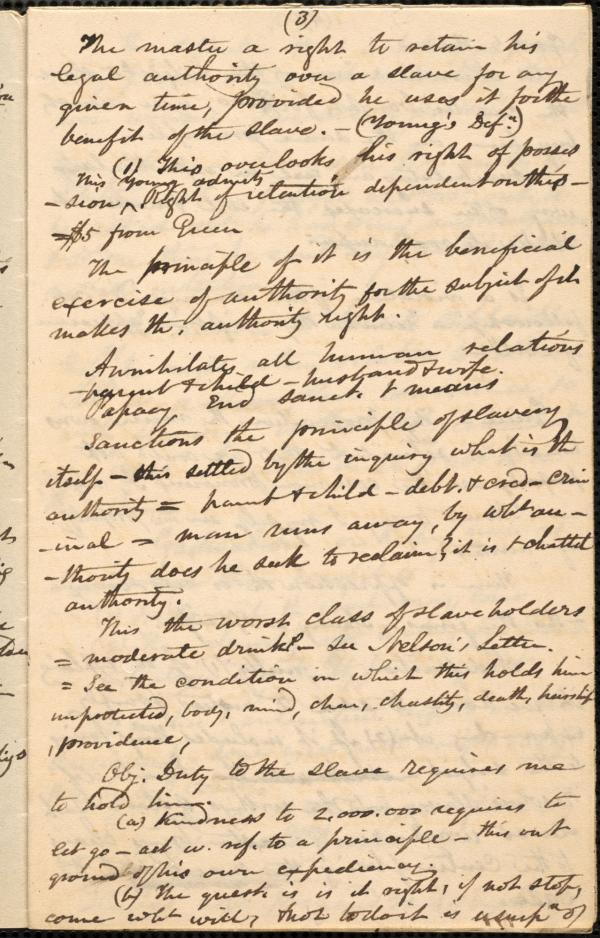 (3)
The master a right to retain his
legal authority over a slave for any
given time, provided he uses it for the
benefit of the slave. – (Young's Def.n)
(1) This overlooks his right of posses
This Young admits
-sion ^ Right of retention dependent on this –
= $5 from Green
The principle of it is the beneficial
exercise of authority for the subject of it
makes the authority right.
Annihilates all human relations
– parent & child – husband & wife.
Papacy End sanct. & means
Sanctions the principle of slavery
itself – this settled by the inquiry what is the
authority = parent & child – debt. & cred – crim
-inal = man runs away, by wht au-
-thority does he seek to reclaim? it is & chattel
authority.
This the worst class of slaveholders
= moderate drinks – see Nelson's Letter.
= See the condition in which this holds him
unprotected, body, mind, char, chastity, death, heirship
, providence,
Obj. Duty to the slave requires me
to hold him.
(a) Kindness to 2,000.000 requires to
let go – act w. ref. to a principle – this out
ground of his own expediency.
(b) The quest. is is it right, if not stop,
come wht will, & not to do it is usurp.n of